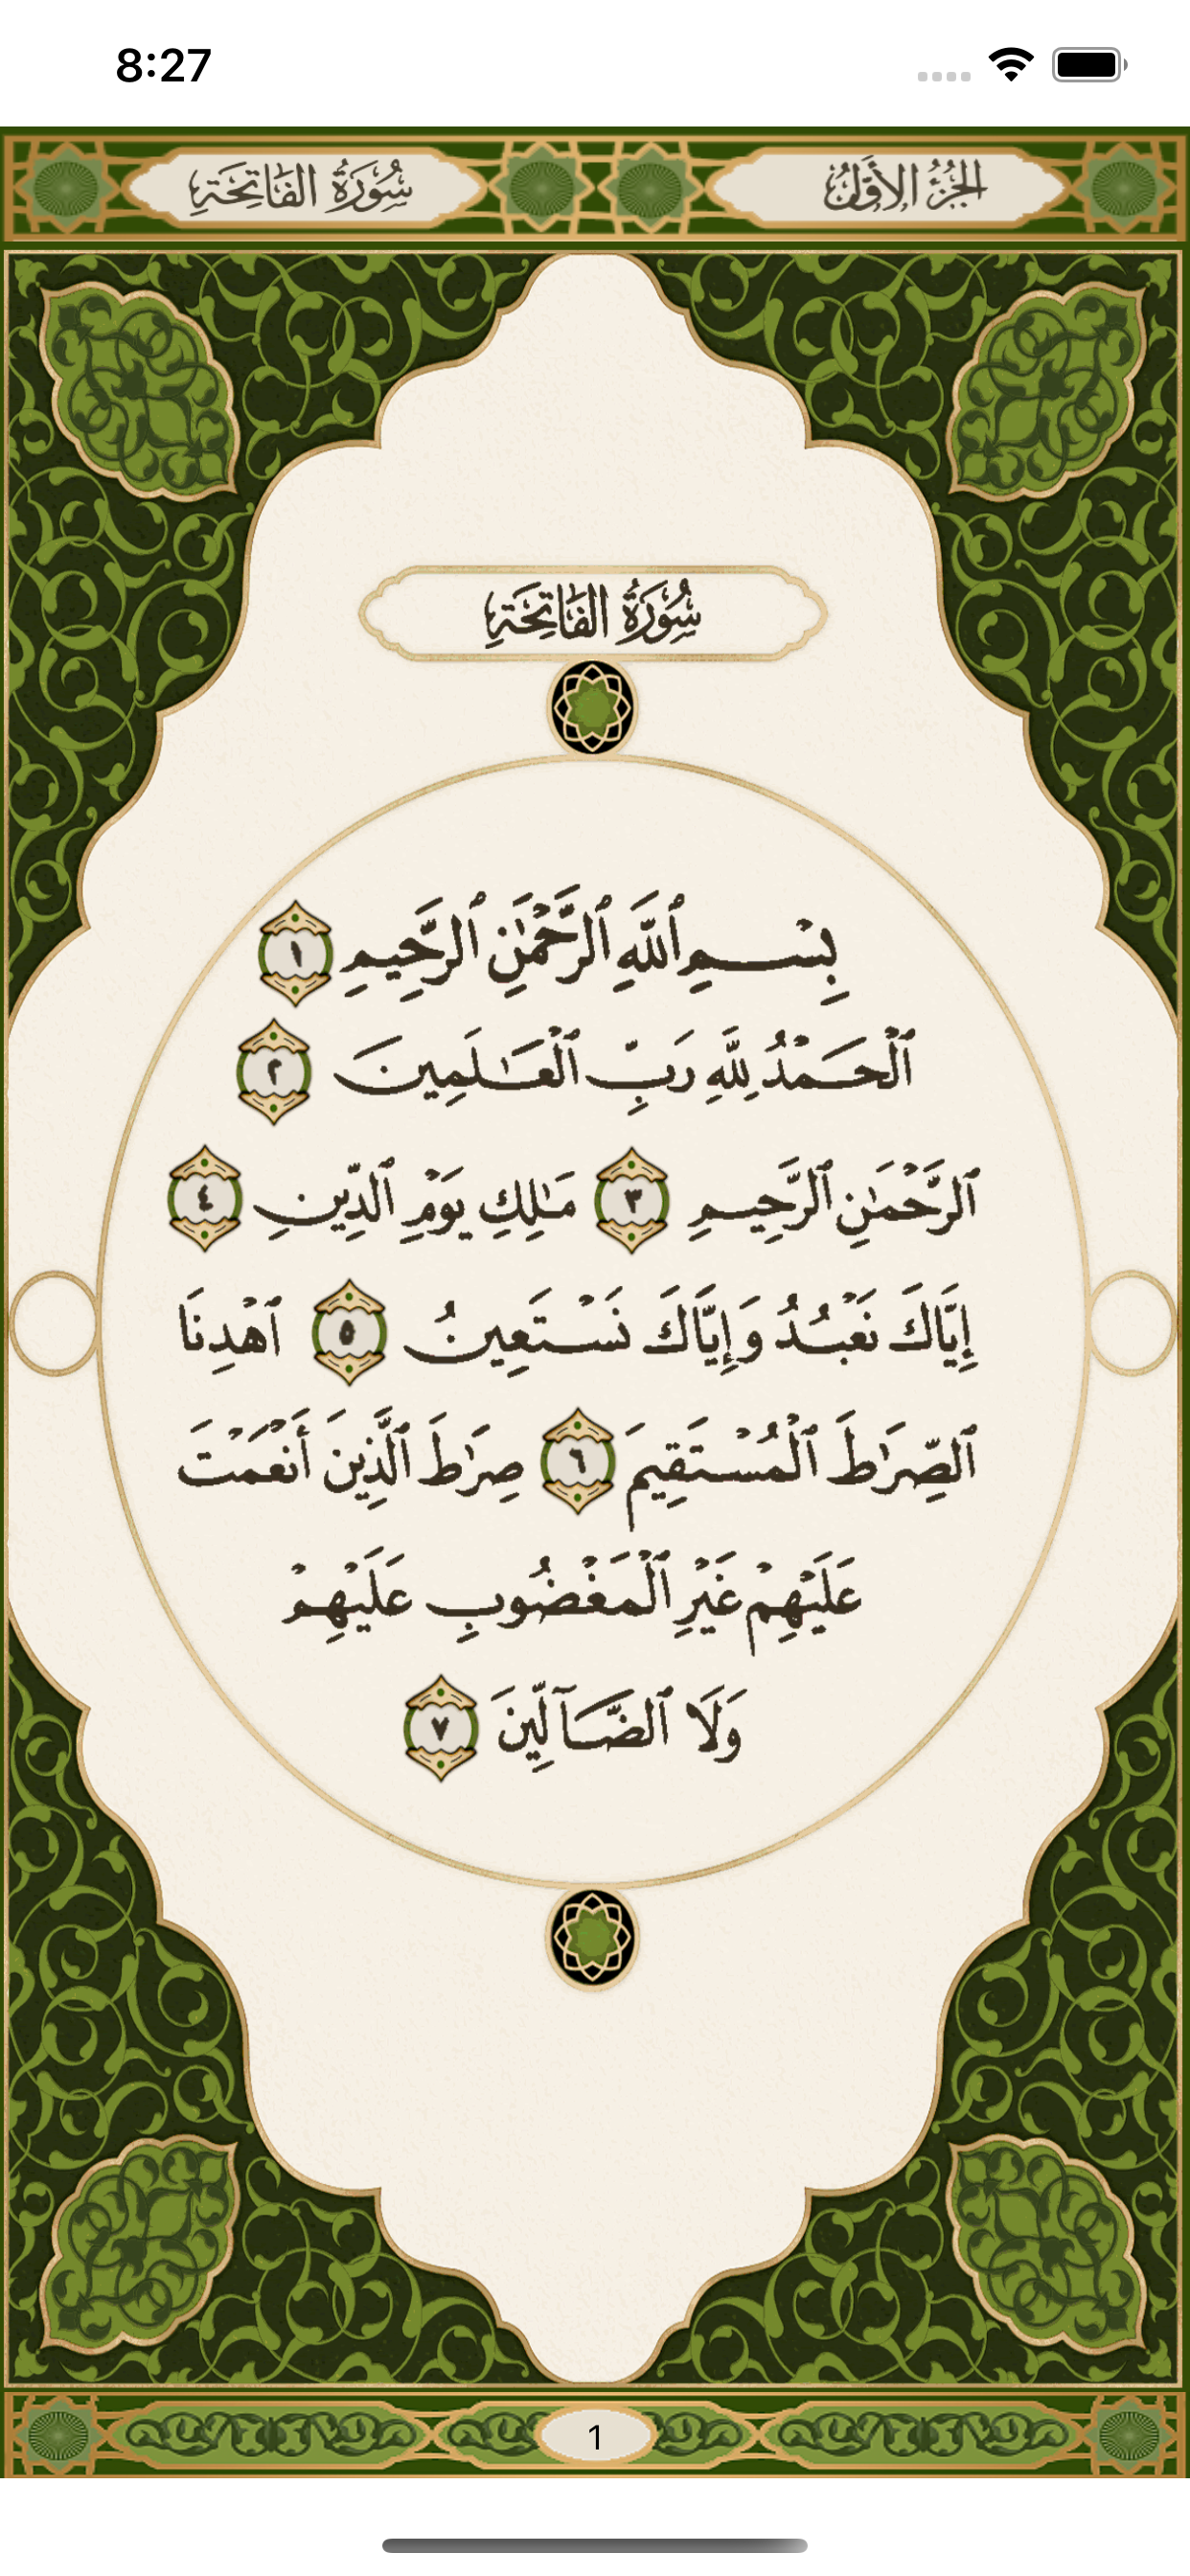 8:27
الجُزْءُ الأَوَّلُ
سُورَةُ الفَاتِحَةِ
سُورَةُ الفَاتِحَةِ
بِسْمِ ٱللَّهِ ٱلرَّحْمَٰنِ ٱلرَّحِيمِ ١
ٱلْحَمْدُ لِلَّهِ رَبِّ ٱلْعَٰلَمِينَ ٢
ٱلرَّحْمَٰنِ ٱلرَّحِيمِ ٣ مَٰلِكِ يَوْمِ ٱلدِّينِ ٤
إِيَّاكَ نَعْبُدُ وَإِيَّاكَ نَسْتَعِينُ ٥ ٱهْدِنَا
ٱلصِّرَٰطَ ٱلْمُسْتَقِيمَ ٦ صِرَٰطَ ٱلَّذِينَ أَنْعَمْتَ
عَلَيْهِمْ غَيْرِ ٱلْمَغْضُوبِ عَلَيْهِمْ
وَلَا ٱلضَّآلِّينَ ٧
1